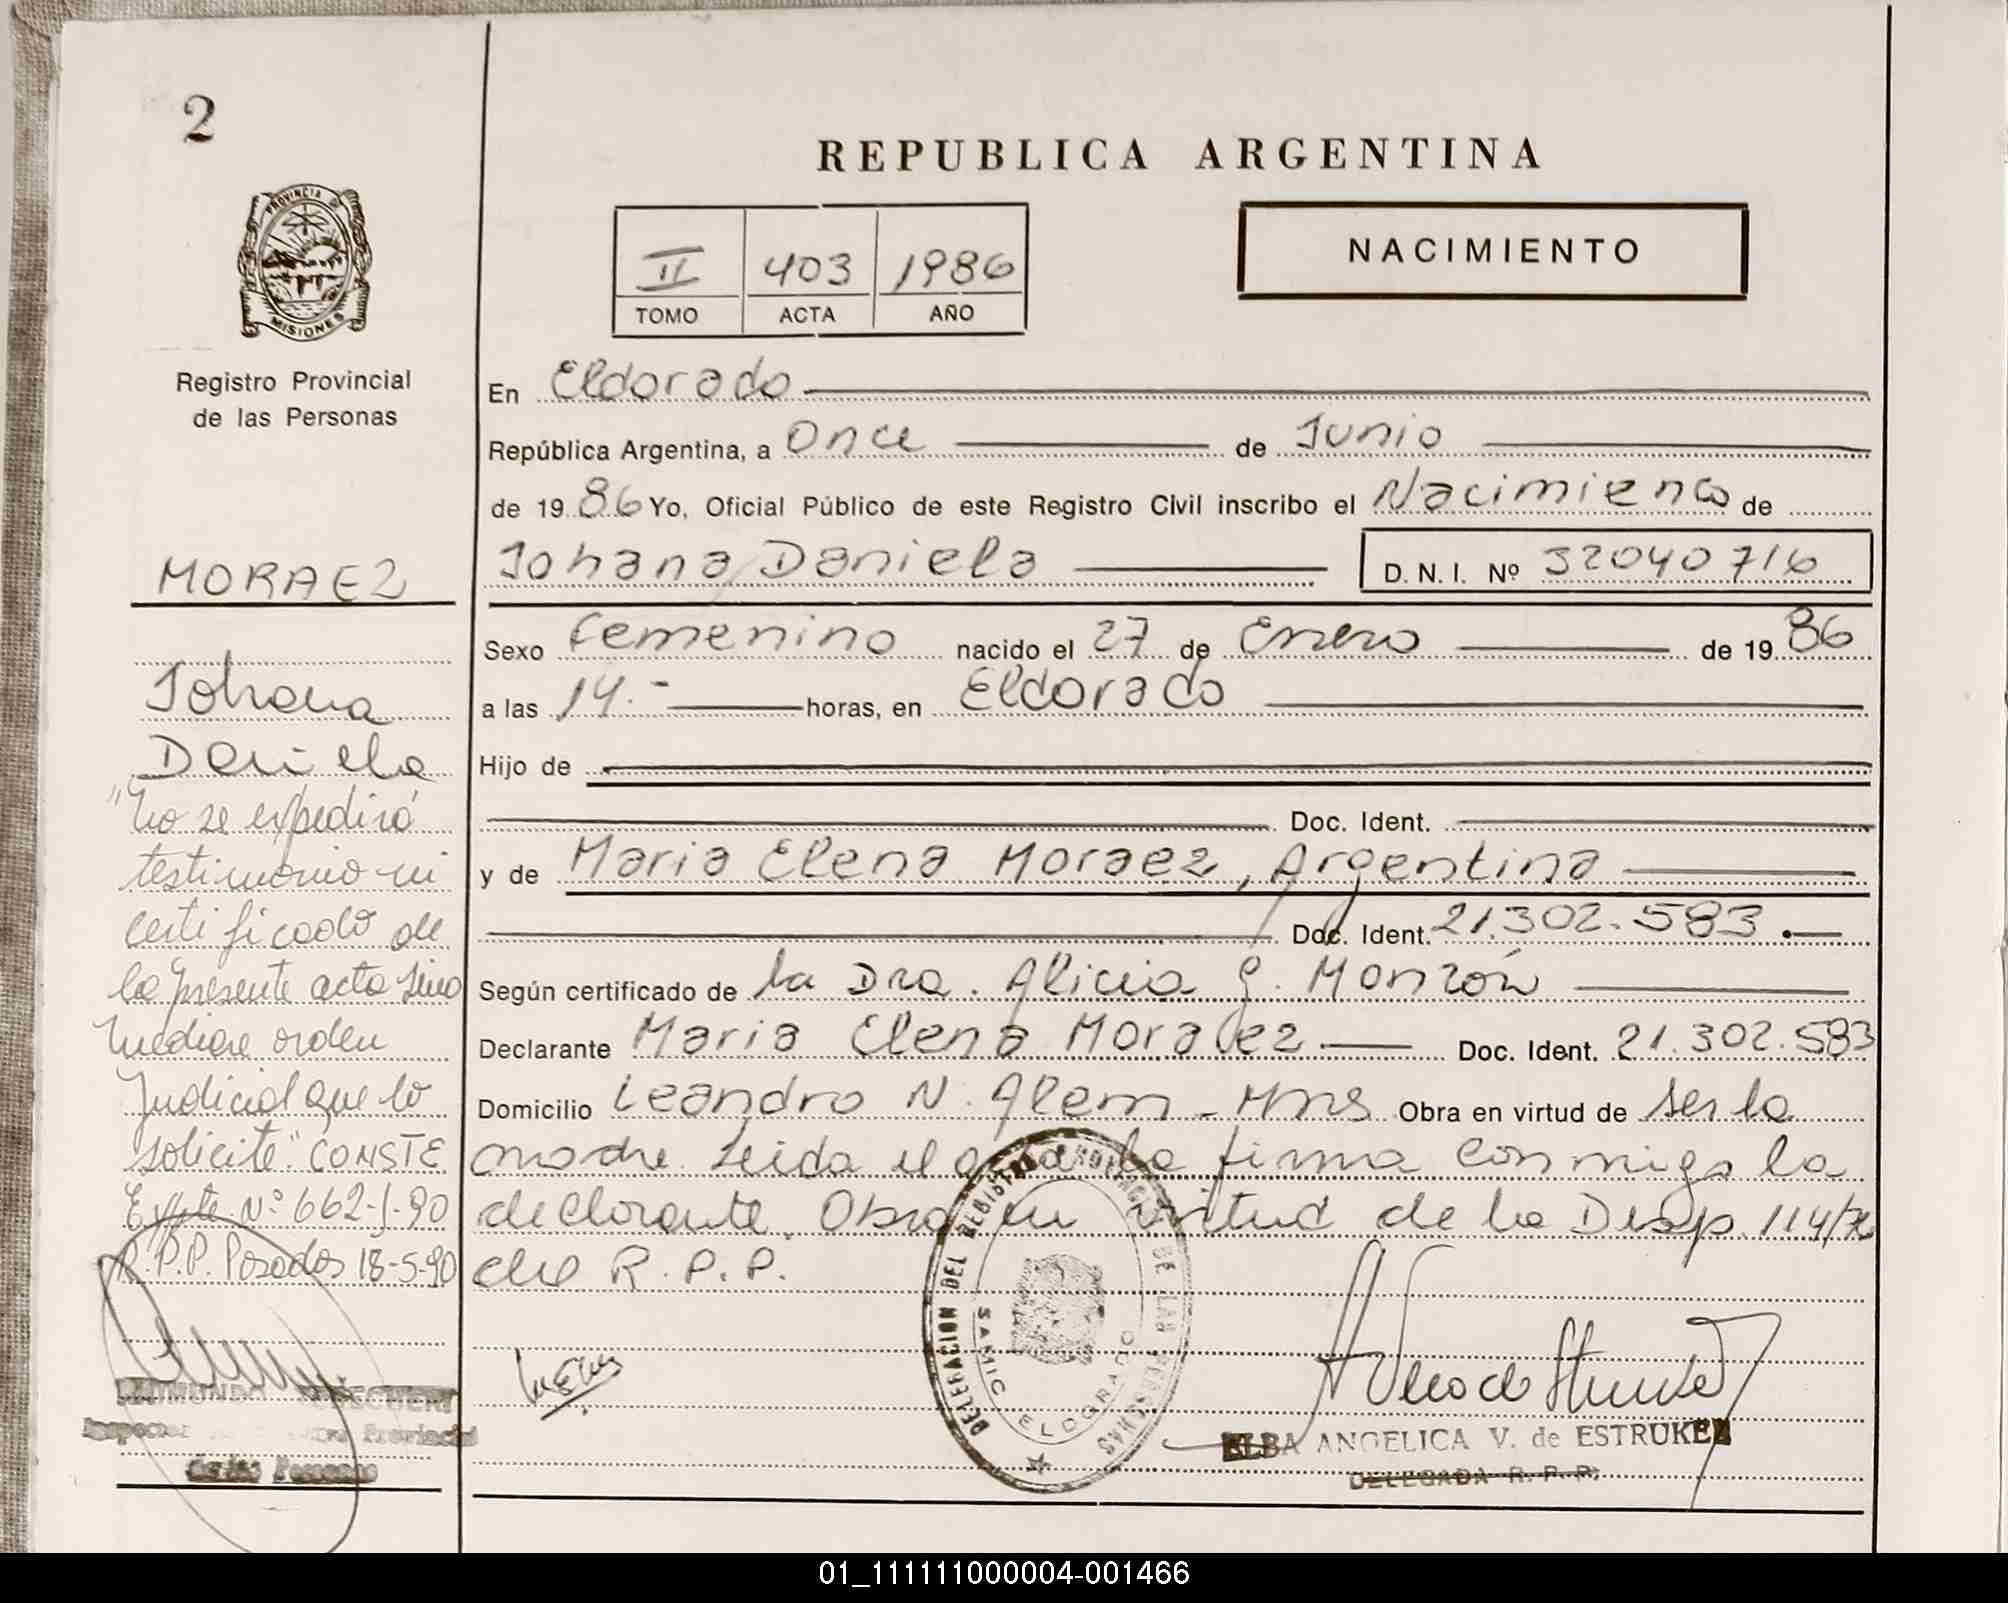 2
REPUBLICA ARGENTINA
PROVINCIA DE
MISIONES
Registro Provincial
de las Personas
II 403 1986
TOMO ACTA AÑO
NACIMIENTO
En Eldorado
República Argentina, a Once de Junio
de 19 86 Yo, Oficial Público de este Registro Civil inscribo el Nacimiento de
Johana Daniela D. N. I. Nº 32040716
Sexo femenino nacido el 27 de Enero de 19 86
a las 14.- horas, en Eldorado
Hijo de
Doc. Ident.
y de Maria Elena Moraez, Argentina
Doc. Ident. 21.302.583.—
Según certificado de la Dra. Alicia G. Monzón
Declarante Maria Elena Moraez Doc. Ident. 21.302.583
Domicilio Leandro N. Alem - Mns Obra en virtud de ser la
madre. Leida el acta la firma conmigo la
declarante. Obra en virtud de la Disp. 114/
del R.P.P.
MORAEZ
Johana
Daniela
"No se expedirá
testimonio ni
certificado de
la presente acta sino
mediare orden
Judicial que lo
solicite". CONSTE
Expte. Nº 662-J-90
R.P.P. Posadas 18-5-90
RAIMUNDO
Inspector Provincial
de las Personas
DELEGACION DEL REGISTRO PROVINCIAL DE LAS PERSONAS
SAMIC ELDORADO
ELBA ANGELICA V. de ESTRUKEL
DELEGADA R. P. P.
01_111111000004-001466